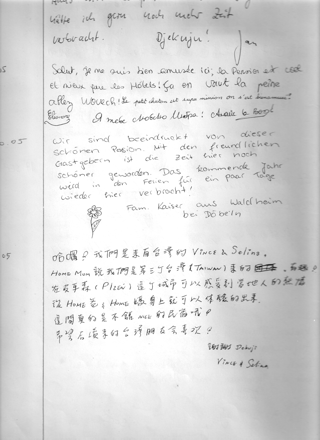 hätte ich gern noch mehr Zeit
verbracht. Djekuju! Jan
Salut, je me suis bien amusée ici; la Pension est cool
et autour pas des Hotels! Ça en vaut la peine
allez
05
Wir sind beeindruckt von dieser
schönen Pasion. Mit den freundlichen
Gastgebern ist die Zeit hier noch
schöner geworden. Das kommende Jahr
wird in den Ferien für ein paar Tage
wieder hier verbracht!
Fam. Kaiser aus Waldheim
bei Döbeln
05
哈囉! 我們是來自台灣的 Vince & Selina.
Home Mom 說我們是第三丁台灣 (Taiwan) 來的
在皮爾森 (Plzeň) 這丁城市可以感受到當地人的熱情
從 Home 爸, Home 媽身上就可以体驗的出來
這間真的是不錯 nice 的民宿哦!
希望有後來的台灣朋友會喜欢!
謝謝 Dekuji
Vince & Selina